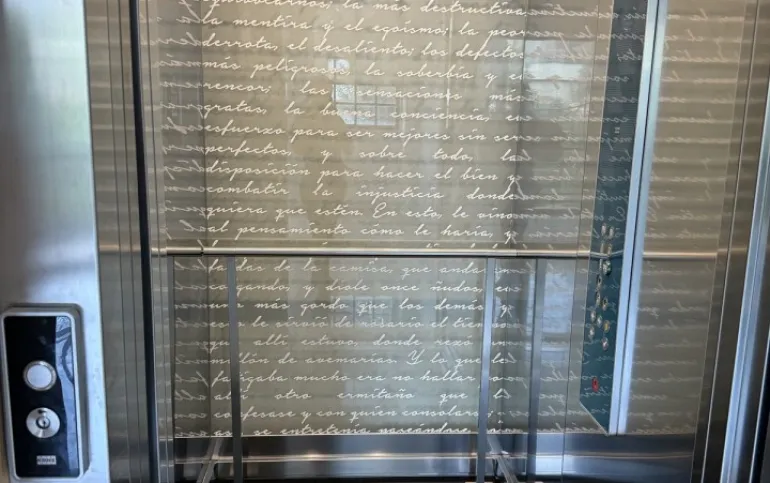 equivocarnos; la más destructiva
la mentira y el egoísmo; la peor
derrota, el desaliento; los defectos
más peligrosos, la soberbia y el
rencor; las sensaciones más
gratas, la buena conciencia, en
esfuerzo para ser mejores sin ser
perfectos, y sobre todo, la
disposición para hacer el bien y
combatir la injusticia donde
quiera que estén. En esto, le vino
al pensamiento cómo le haría, y
faldas de la camisa, que andaban
colgando, y diole once ñudos, el
uno más gordo que los demás, y
esto le sirvió de rosario el tiempo
que allí estuvo, donde rezó un
millón de avemarías. Y lo que le
fatigaba mucho era no hallar por
allí otro ermitaño que le
confesase y con quien consolarse;
se entretenía paseándose